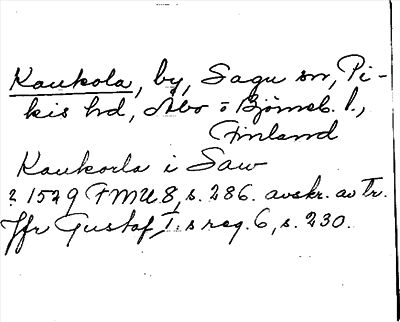 Kaukola, by, Sagu sn, Pi-
kis hd, Åbo o Björneb. l.,
Finland
Kaukorla i Saw
? 1529 FMU 8, s. 286. avskr. av Tr.
Jfr Gustaf I:s reg. 6, s. 230.